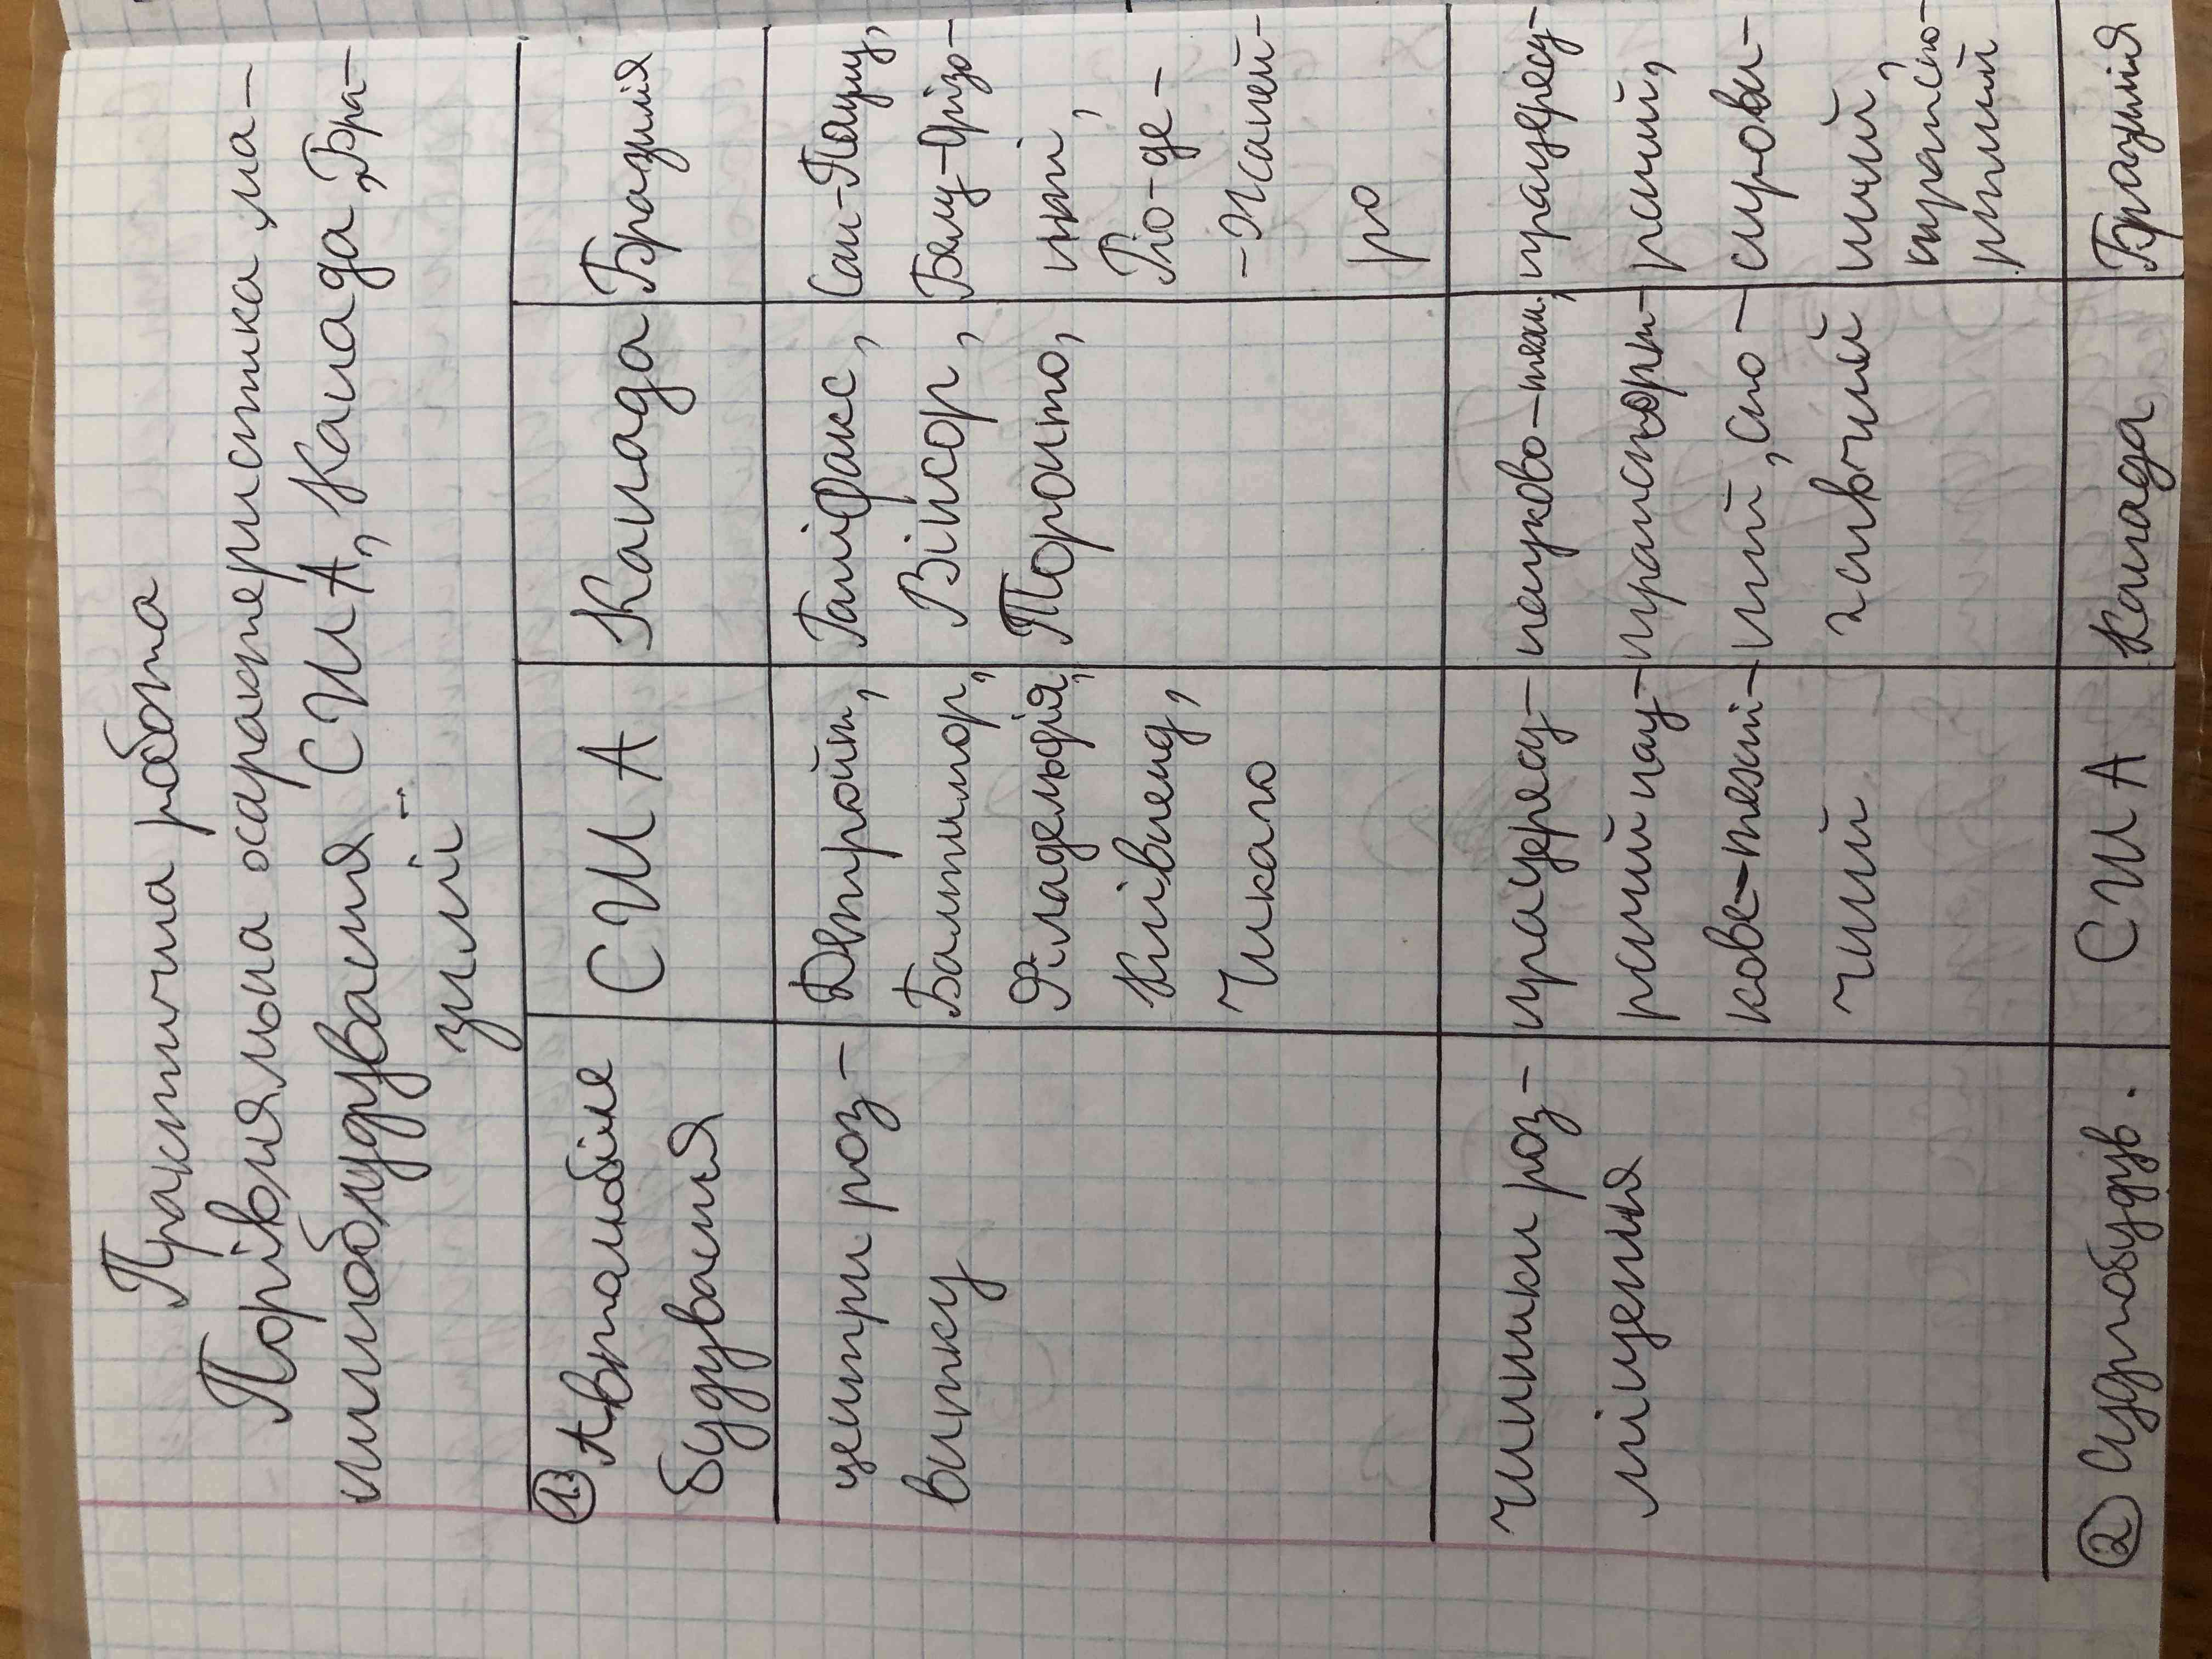 Практична робота
Порівняльна характеристика „ма-
шинобудування США, Канада, Бра-
зилії"
① Автомобіле
будування
США
Канада
Бразилія
центри роз-
витку
Детройт,
Балтимор,
Філадельфія,
Клівленд,
Чикаго
Галіфакс,
Вінсор,
Торонто,
Сан-Паулу,
Белу-Орізо-
нті,
Ріо-де-
-Жаней-
ро
чинники роз-
міщення
працересу-
рсний нау-
кове-техні-
чний
науково-техн.,
транспорт-
ний, спо-
живчий
працересу-
рсний,
сирови-
нний,
транспо-
ртний
② Суднобудув.
США
Канада
Бразилія